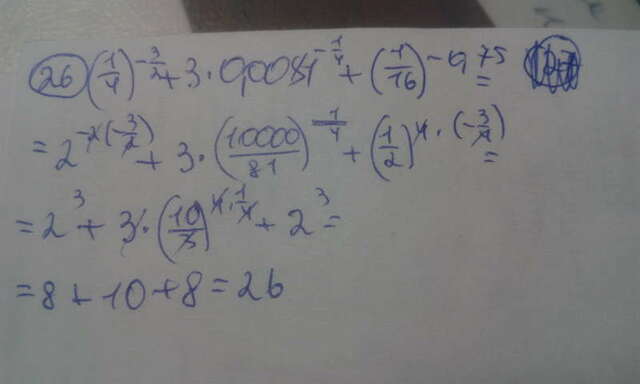 26 (1/4)^{-3/2} + 3 · 0,0081^{-1/4} + (1/16)^{-0,75} =
= 2^{-2(-3/2)} + 3 · (10000/81)^{1/4} + (1/2)^{4 · (-3/4)} =
= 2^3 + 3 · (10/3)^{4 · 1/4} + 2^3 =
= 8 + 10 + 8 = 26